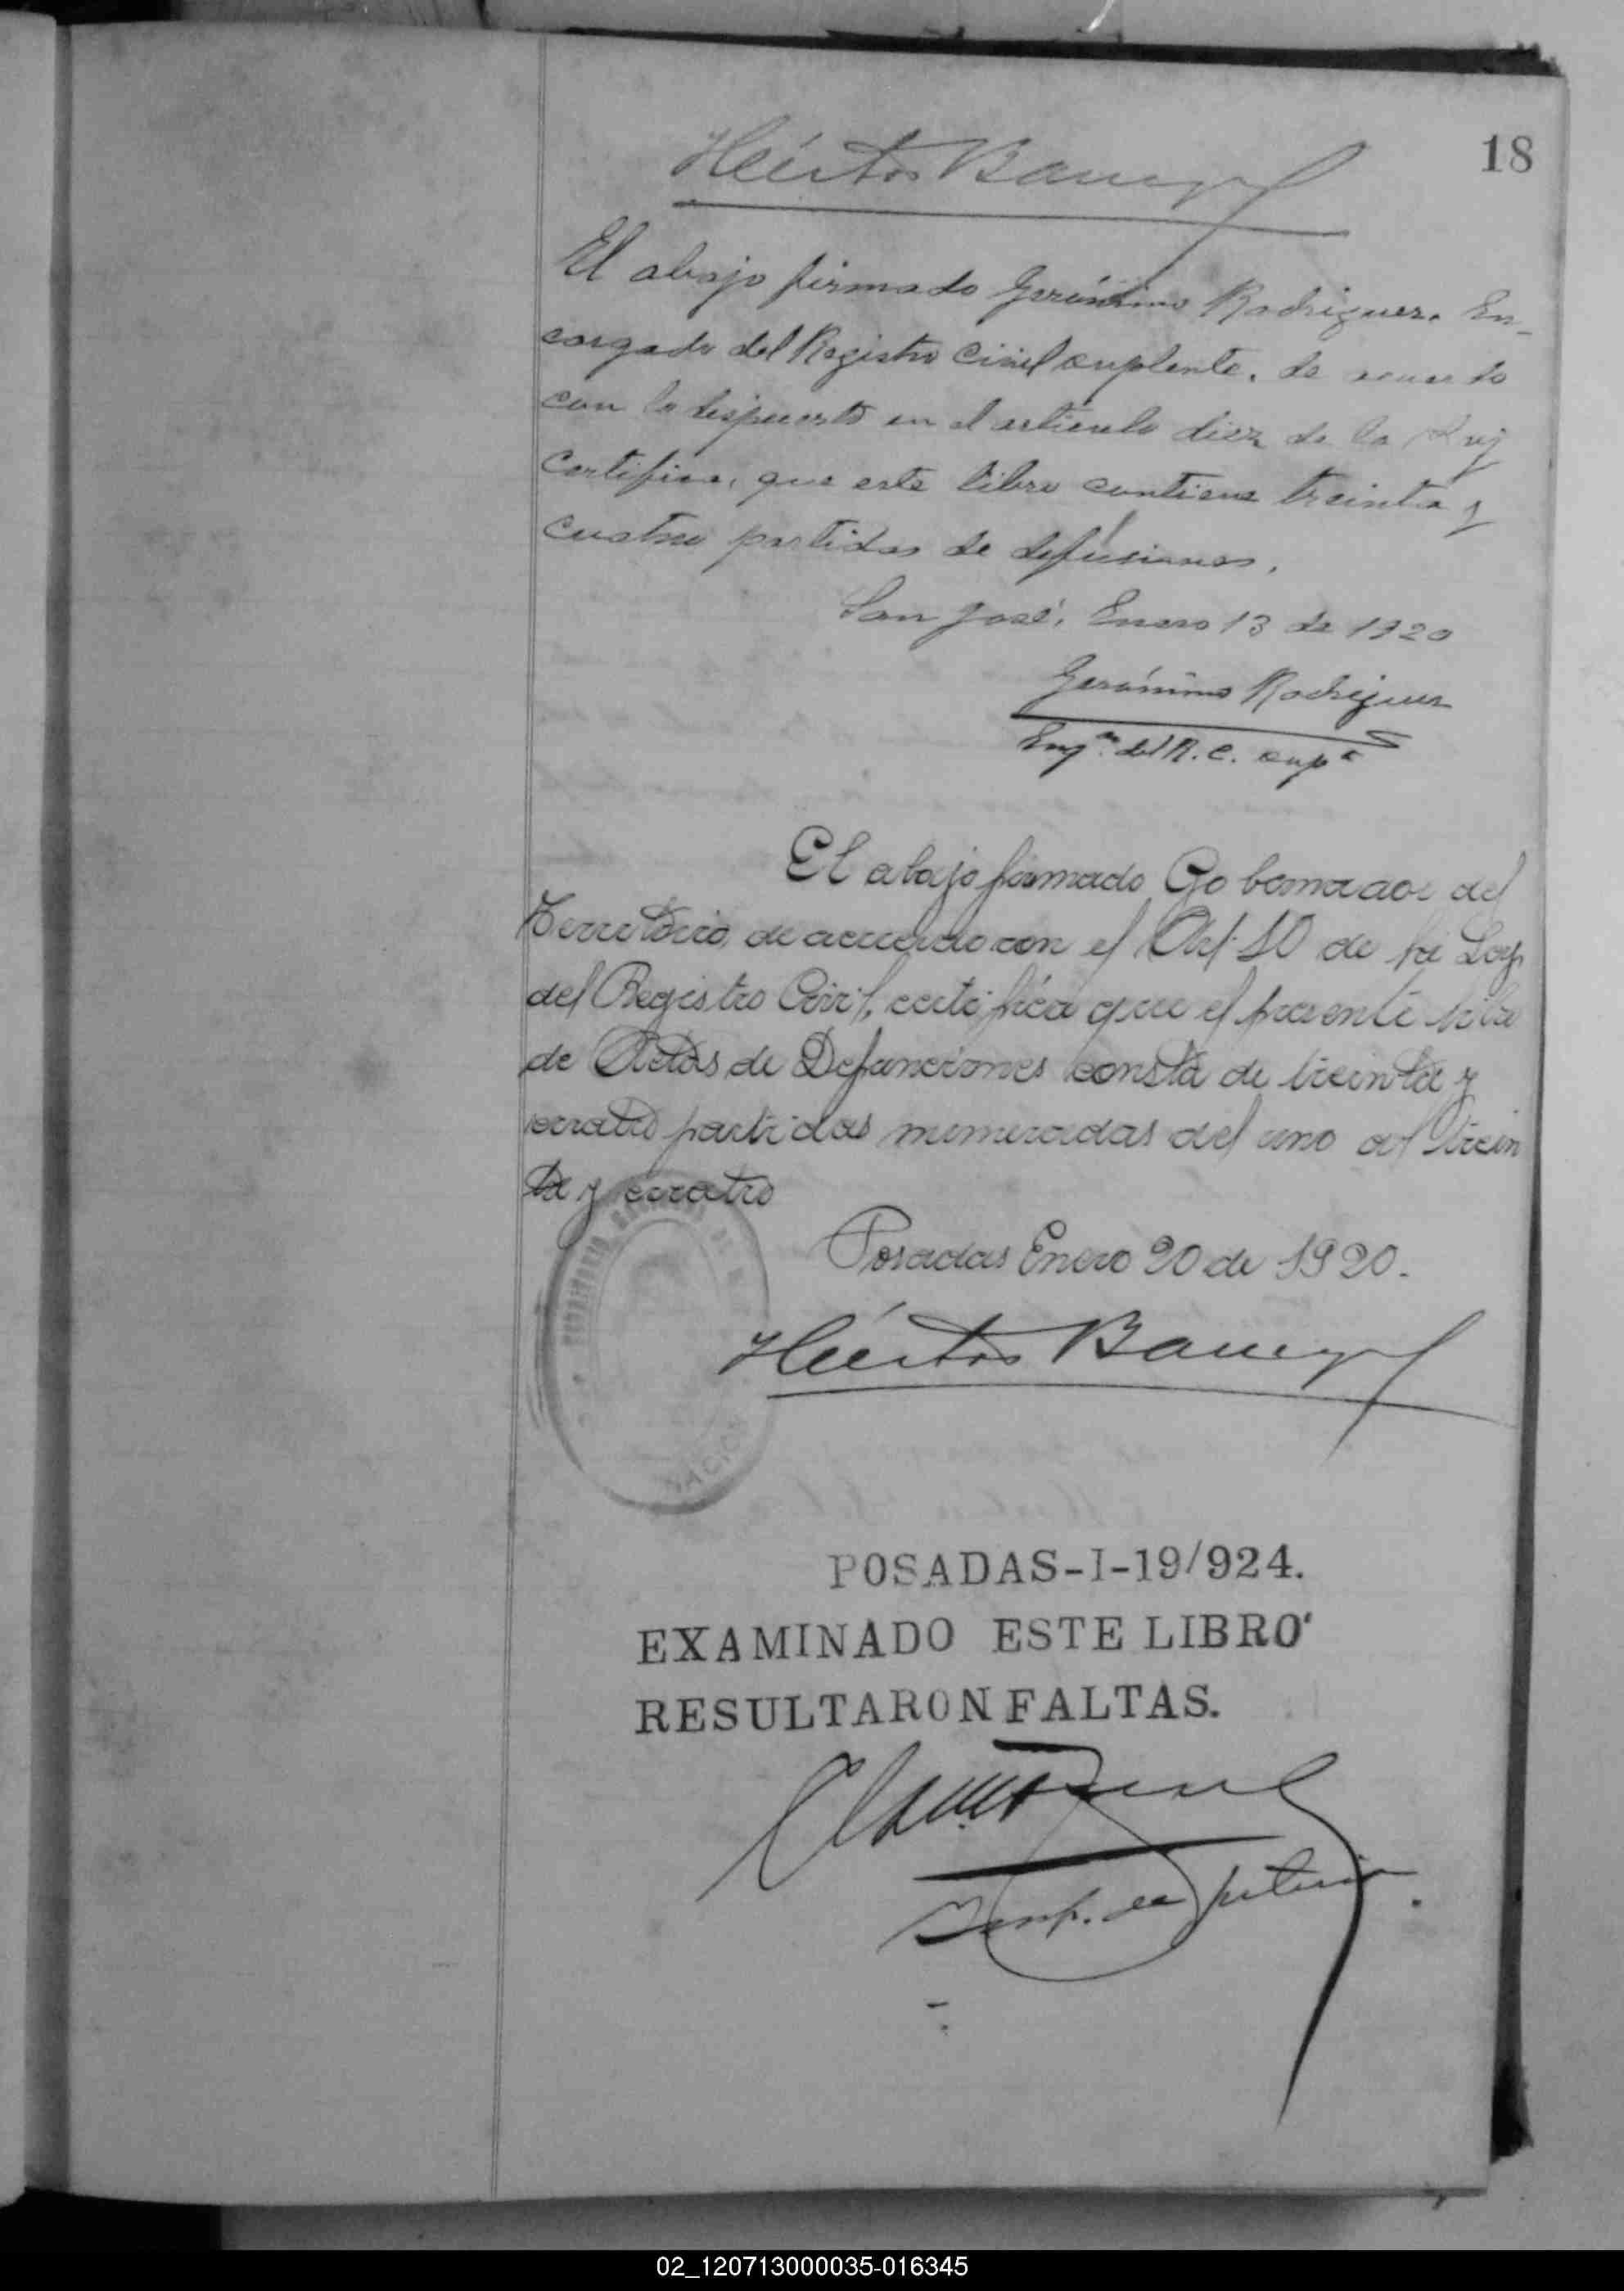 18
Héctor Barreyro
El abajo firmado Gerónimo Rodriguez. En-
cargado del Registro Civil suplente. de acuerdo
con lo dispuesto en el articulo diez de la Ley
Certifica, que este libro contiene treinta y
cuatro partidas de defunciones.
San José, Enero 13 de 1920
Gerónimo Rodriguez
Eng.do del R. C. sup.te
El abajo firmado Gobernador del
Territorio, de acuerdo con el Art. 10 de la Ley
del Registro Civil, certifica que el presente libro
de Actas de Defunciones consta de treinta y
cuatro partidas numeradas del uno al trein
ta y cuatro
Posadas Enero 20 de 1920.
Héctor Barreyro
NACION
POSADAS-I-19/924.
EXAMINADO ESTE LIBRO
RESULTARON FALTAS.
Insp. de
02_120713000035-016345